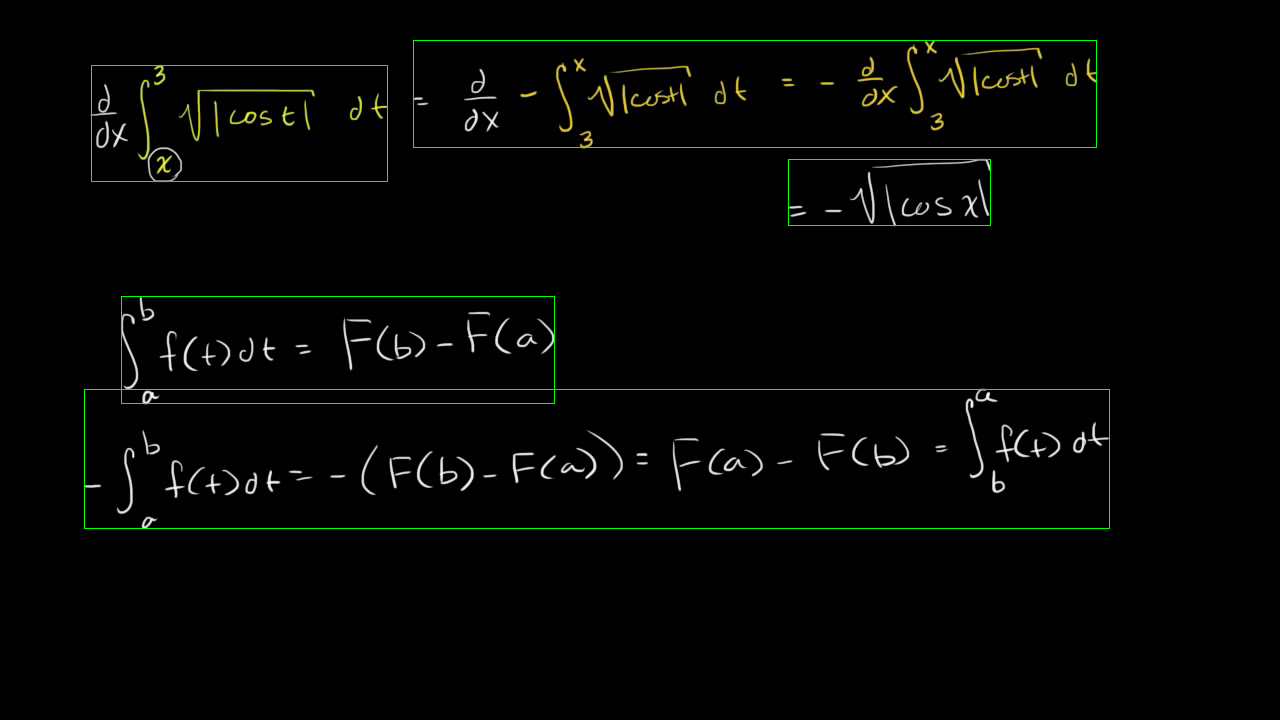 d/dx ∫_x^3 √|cos t| dt = d/dx - ∫_3^x √|cos t| dt = - d/dx ∫_3^x √|cos t| dt
= - √|cos x|
∫_a^b f(t) dt = F(b) - F(a)
- ∫_a^b f(t) dt = - (F(b) - F(a)) = F(a) - F(b) = ∫_b^a f(t) dt